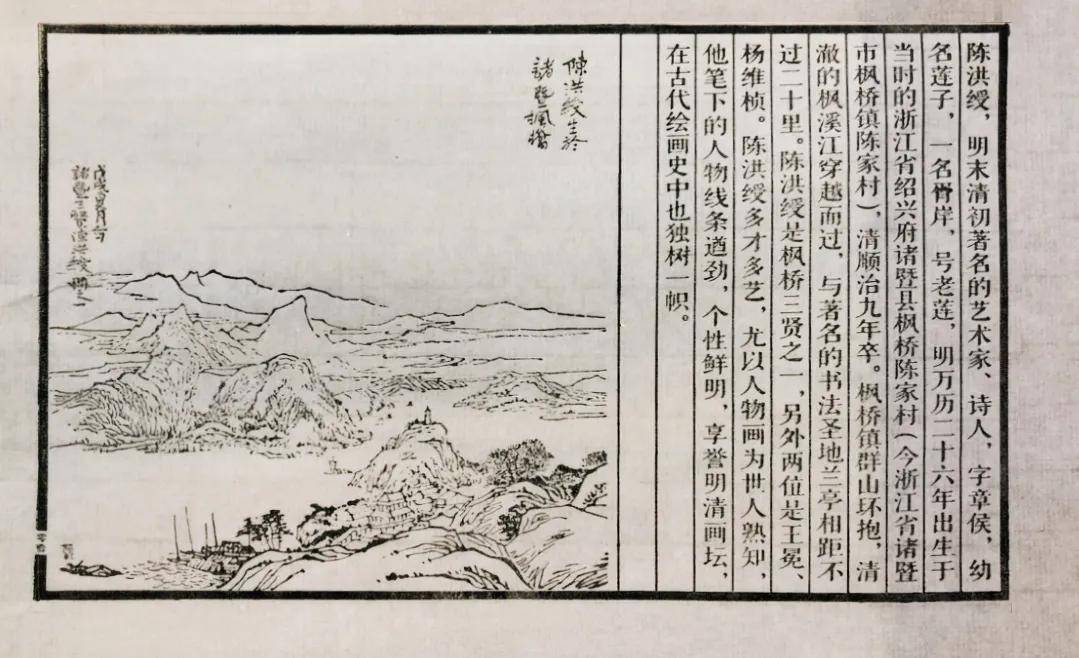 陈洪绶，明末清初著名的艺术家、诗人，字章侯，幼
名莲子，一名胥岸，号老莲，明万历二十六年出生于
当时的浙江省绍兴府诸暨县枫桥陈家村（今浙江省诸暨
市枫桥镇陈家村），清顺治九年卒。枫桥镇群山环抱，清
澈的枫溪江穿越而过，与著名的书法圣地兰亭相距不
过二十里。陈洪绶是枫桥三贤之一，另外两位是王冕、
杨维桢。陈洪绶多才多艺，尤以人物画为世人熟知，
他笔下的人物线条遒劲，个性鲜明，享誉明清画坛，
在古代绘画史中也独树一帜。
陳洪綬生於
諸暨楓橋
戊戌
諸暨三賢陳洪綬